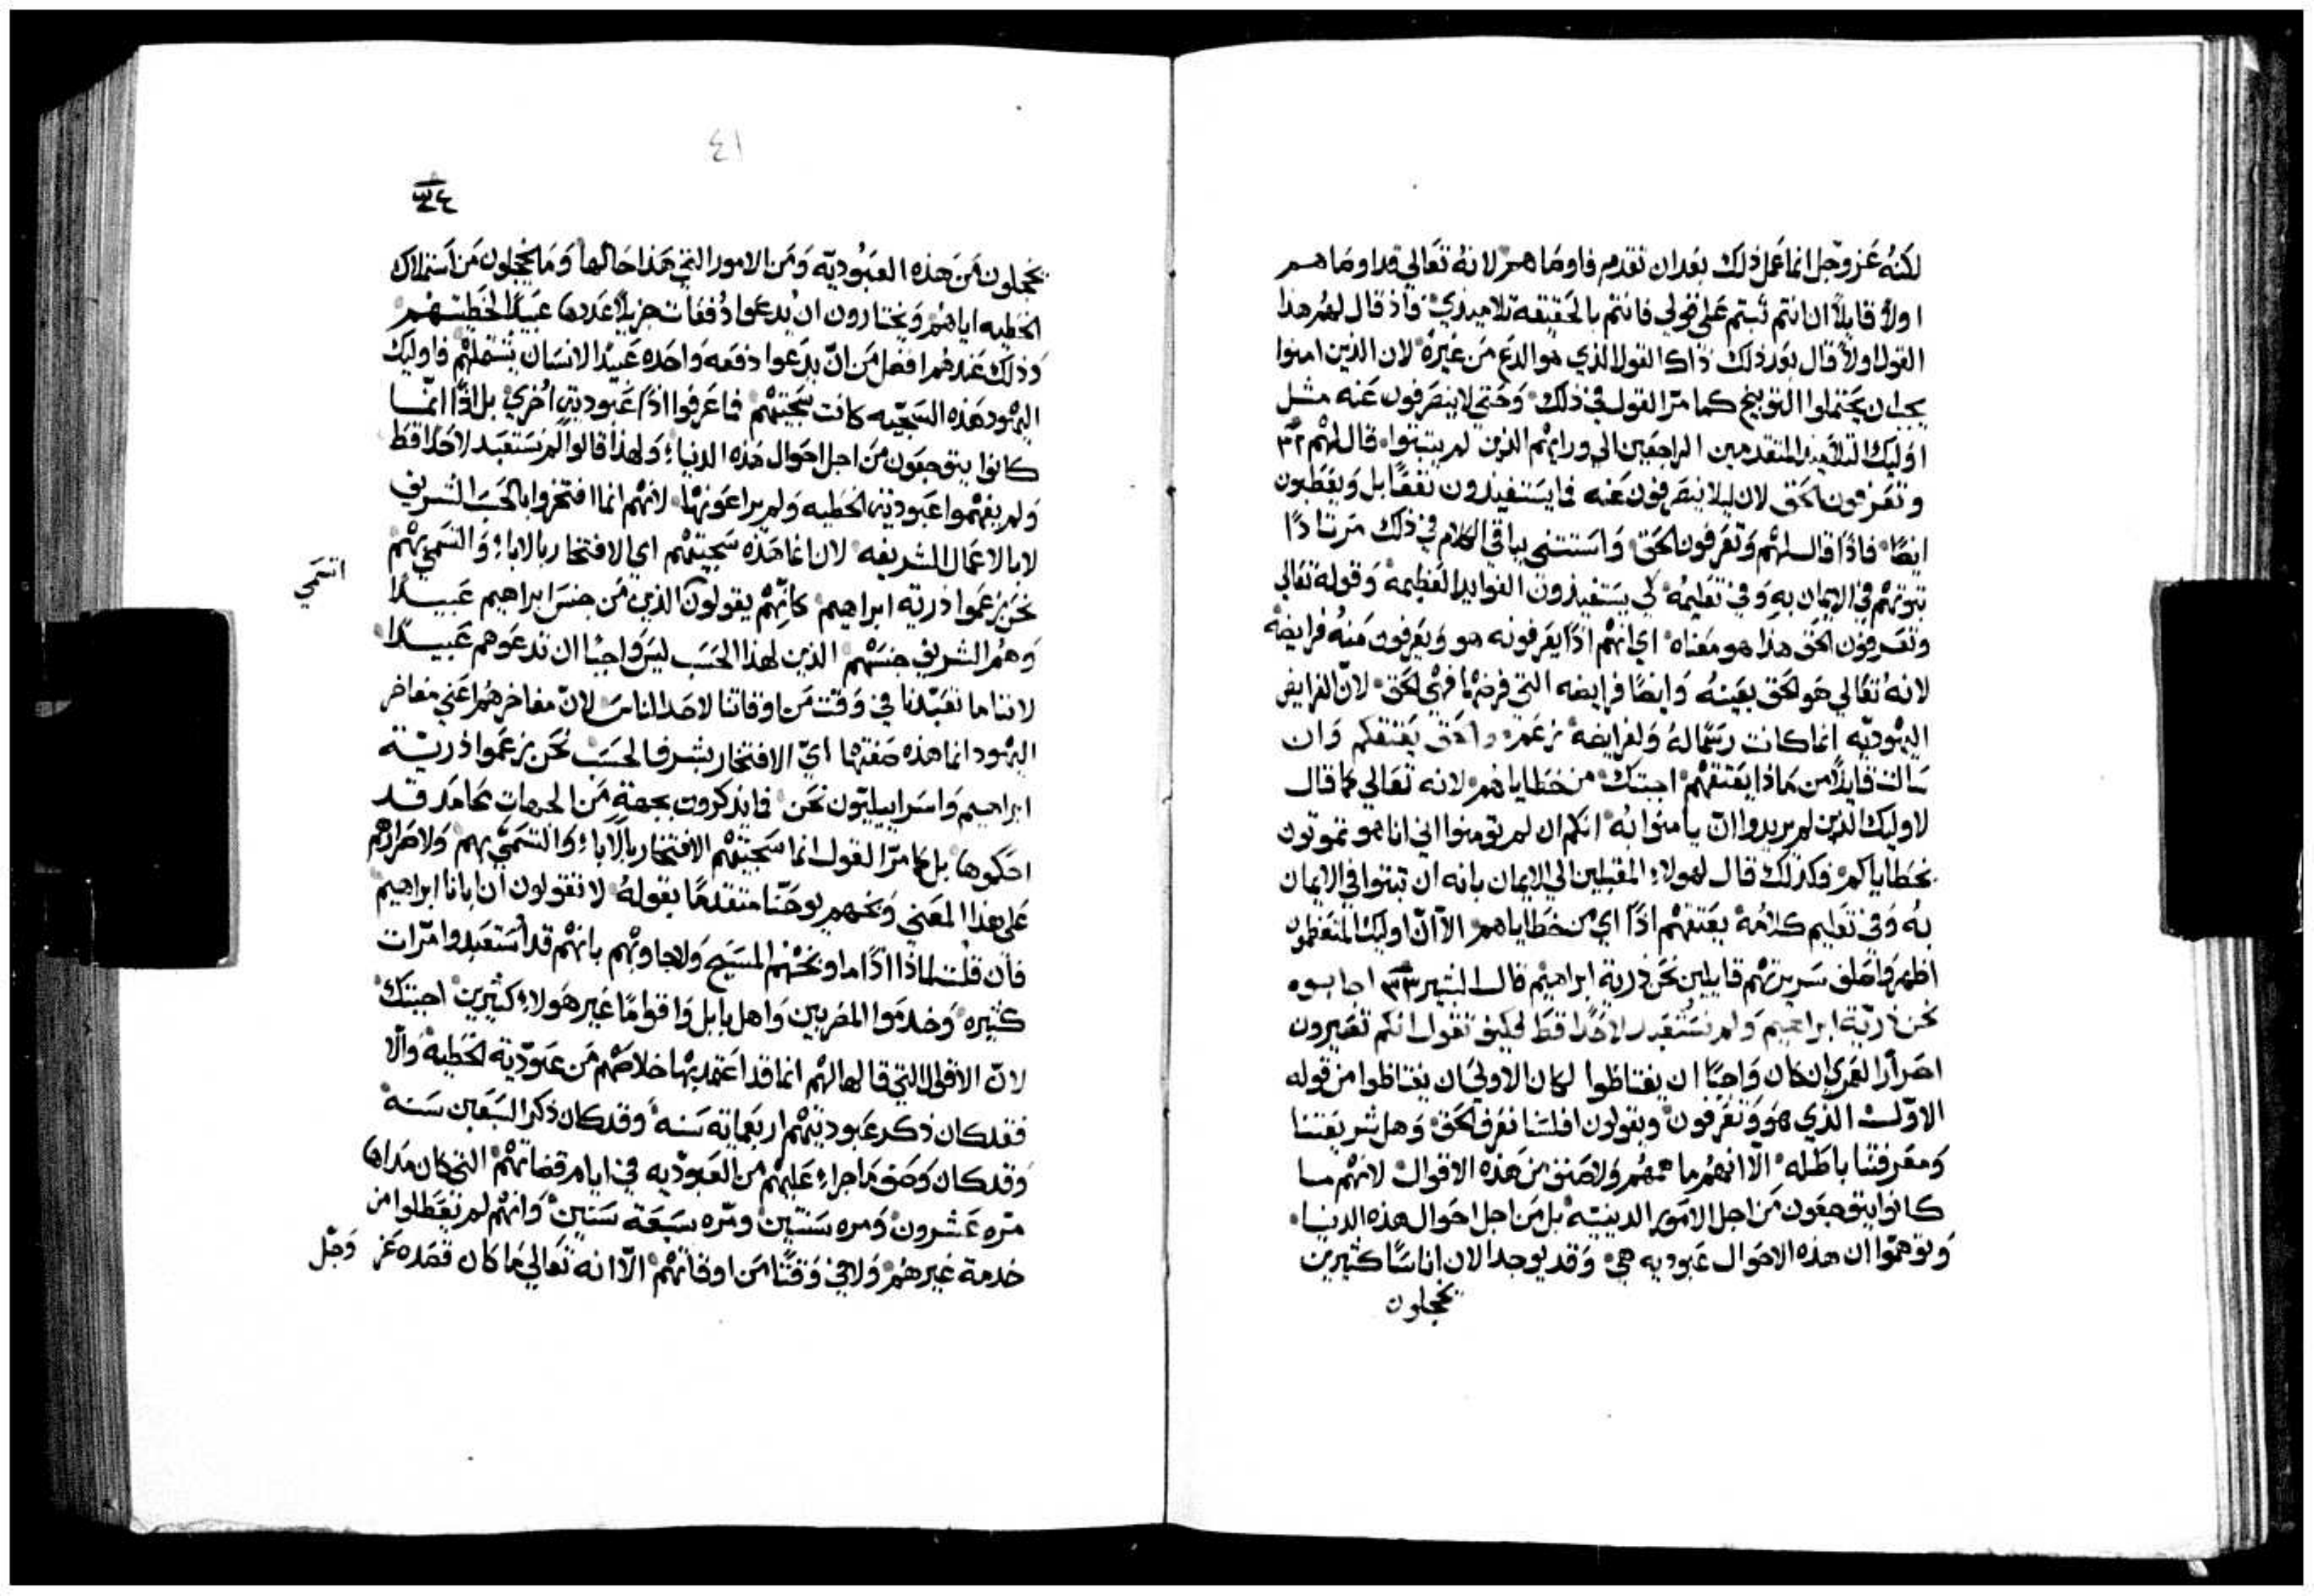 لكنه عز وجل انما عمل ذلك بعد ان تقدم فاوماهم لانه تعالي قد اوماهم
اولًا قايلًا ان انتم ثبتم علي قولي فانتم بالحقيقه تلاميذي فاذ قال لهم هذا
القول اولًا قال بعد ذلك ذاك القول الذي هو الدع من غيره لان الذين امنوا
يجب ان يحتملوا التوبيخ كما مرّ القول في ذلك وحتي لا ينصرفون عنه مثل
اوليك التلاميذ المتقدمين الراجعين الي ورايهم الذين لم يثبتوا قال لهم ٣٢
وتعرفون الحق لان ليلا ينصرفون عنه فما يستفيدون نفعًا بل ويعطبون
ايضًا فاذًا قال لهم وتعرفون الحق واستتني بباقي الكلام في ذلك مرتادًا
ثبوتهم في الايمان به وفي تعليمه لكي يستفيدون الفوايد العظيمة وقوله تعالي
وتعرفون الحق هذا هو معناه اي انهم اذًا يعرفونه هو ويعرفون منه فرايضه
لانه تعالي هو الحق بعينه وايضًا فرايضه التي فرضها فهي الحق لانّ الفرايض
اليهوديه انما كانت رسمًا له ولفرايضه والحق يعتقكم وان
سالت قايلًا من ماذا يعتقهم اجبتك من خطاياهم لانه تعالي كما قال
لاوليك الذين لم يريدوا انّ يامنوا به انكم ان لم تومنوا اني انا هو تموتون
بخطاياكم فكذلك قال لهولاء المقبلين الي الايمان بانه ان ثبتوا في الايمان
به وفي تعليم كلامه يعتقهم اذًا اي من خطاياهم الّا انّ اوليك المتعظمون
اظهر واحلق سريرتهم قايلين نحن ذرية ابراهيم قال البشير ٣٣ اجابوه
نحن ذريّة ابراهيم ولم نستعبد لاحدًا قط فكيف تقول انكم تصيرون
احرارًا لعمري ان كان واجبًا ان يغتاظوا لكان الاولي ان يغتاظوا من قوله
الاوّل الذي هو وتعرفون ويقولون افلسنا نعرف الحق وهل شريعتنا
ومعرفتنا باطله الّا انهم ما همهم ولا صنف من هذه الاقوال لانهم ما
كانوا يتوجعون من اجل الامور الدينيّه بل من اجل احوال هذه الدنيا
وتوهّموا ان هذه الاحوال عبوديه هي وقد يوجد الان اناسًا كثيرين
يخجلون
٤١
٣٤
يخجلون من هذه العبوديّه ومن الامور التي هذا حالها وما يخجلون من استملاك
الخطيه اياهم ويختارون ان يدعوا دفعات جزيلًا عددها عبيدًا لخطيتهم
وذلك عندهم افضل من انّ يدعوا دفعه واحده عبيدًا لانسان يشملهم فاوليك
اليهود هذه السجيّه كانت سجيتهم فما عرفوا اذًا عبوديةً اخري بل اذًا انمّا
كانوا يتوجعون من اجل احوال هذه الدنيا ولهذا قالوا لم نستعبد لاحدًا قط
ولم يفهموا عبودية الخطيه ولم يراعونها لانهم انما افتخروا بالحسب الشريف
لا بالاعمال الشريفه لان انما هذه سجيتهم اي الافتخار بالاباء والتسمي بهم
انتمي
نحن زعموا ذرية ابراهيم كانّهم يقولون الذين من جنس ابراهيم عبيدًا
وهم الشريف جنسهم الذين لهذا الحسب ليس واجبًا ان تدعوهم عبيدًا
لاننا ما تعبّدنا في وقت من اوقاتنا لاحد الناس لانّ مفاخرهم اعني مفاخر
اليهود انما هذه صفتها ايّ الافتخار بشرف الحسب نحن زعموا ذريّة
ابراهيم واسراييليّون نحن فما يذكرون بجهةٍ من الجهات محامد قد
احكموها بل كما مرّ القول انما سجيتهم الافتخار بالاباء والتسمّي بهم ولاضرارهم
علي هذا المعني وبخهم يوحنّا متقدمًا بقوله لا تقولون ان ابانا ابراهيم
فان قلت لماذا اذًا ما وبخهم المسيح ولا جاوبهم بانهم قد استعبدوا مرّات
كثيره وخدموا المصريين واهل بابل واقوامًا غير هولاء كثيرين اجبتك
لانّ الاقوال التي قالها لهم انما قد اعتمد بها خلاصهم من عبوديّة الخطيه والّا
فقد كان ذكر عبوديتهم اربعماية سنه وقد كان ذكر السبعين سنه
وقد كان وصف ما جراء عليهم من العبوديه في ايام قضاتهم التي كان مداها
مرّه عشرون ومره سنتين ومرّه سبعة سنين وانهم لم تعطلوا من
خدمة غيرهم ولا في وقتًا من اوقاتهم الّا انه تعالي ما كان قصده عز وجّل